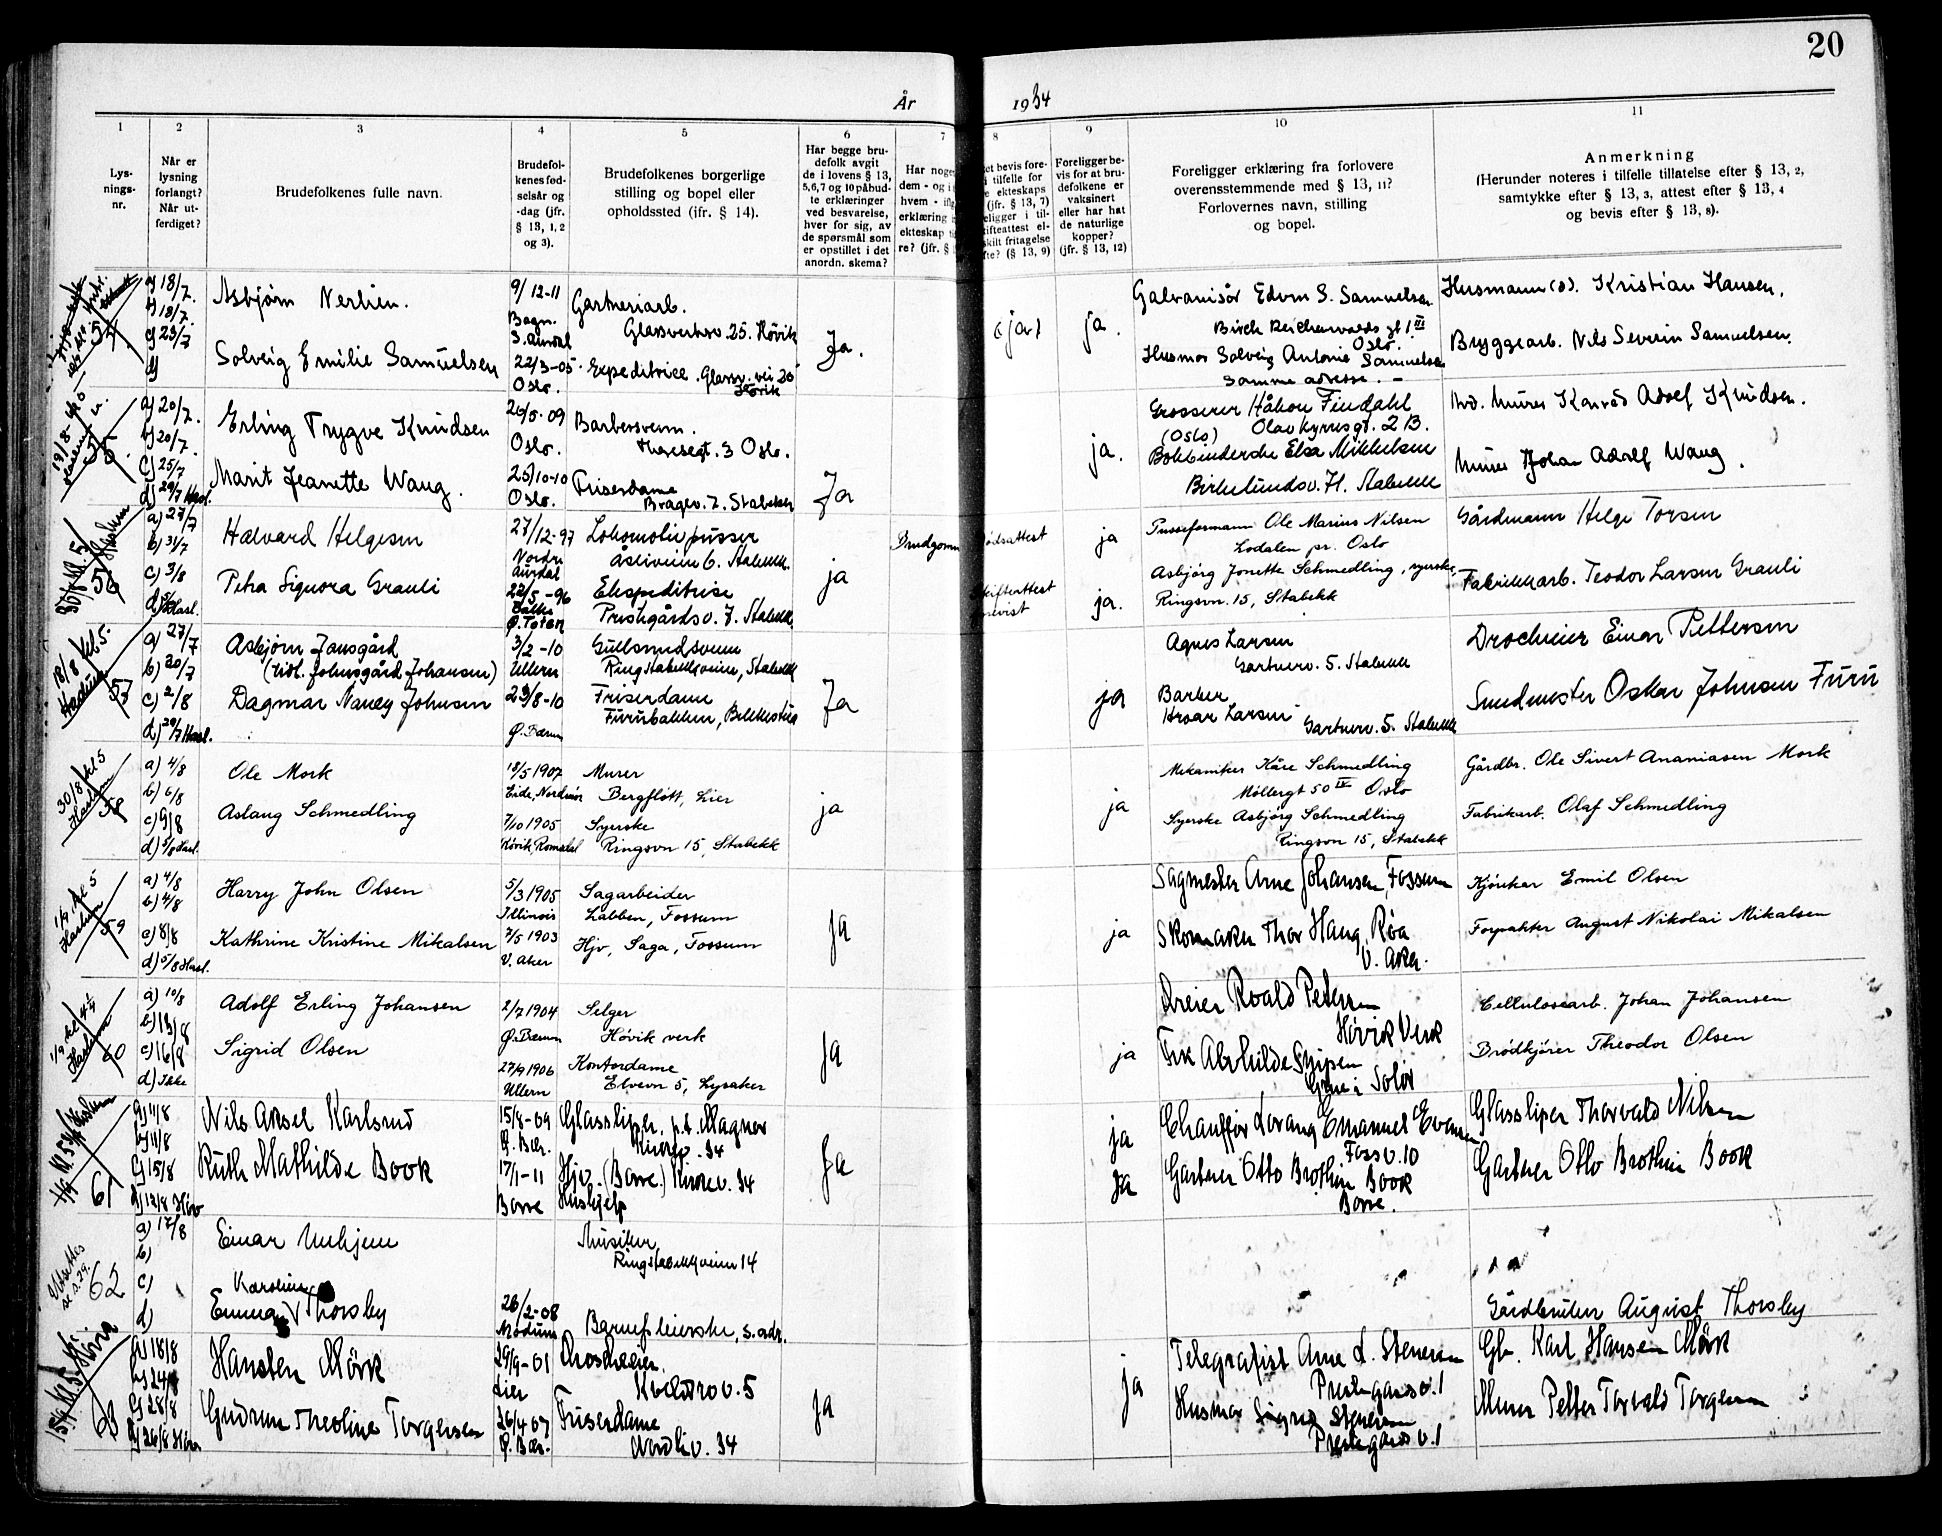 20
År 1934
1 2 3 4 5 6 7 8 9 10 11
Lys-
nings-
nr.
Når er
lysning
forlangt?
Når ut-
ferdiget?
Brudefolkenes fulle navn.
Brudefol-
kenes fød-
selsår og
-dag (jfr.
§ 13, 1, 2
og 3).
Brudefolkenes borgerlige
stilling og bopel eller
opholdssted (ifr. § 14).
Har begge bru-
defolk avgit
de i lovens § 13,
5,6,7 og 10 påbud-
te erklæringer
ved besvarelse,
hver for sig, av
de spørsmål som
er opstillet i det
anordn. skema?
Har noge
dem - og i
hvem - ifl
erklæring
ekteskap
re? (jfr. §
et bevis fore-
i tilfelle for
e ekteskaps
(jfr. § 13, 7)
eligger i til-
ifteattest el-
skilt fritagelse
fte? (§ 13, 9)
Foreligger be-
vis for at bru-
defolkene er
vaksinert
eller har hat
de naturlige
kopper?
(jfr. § 13, 12)
Foreligger erklæring fra forlovere
overensstemmende med § 13, 11?
Forlovernes navn, stilling
og bopel.
Anmerkning
(Herunder noteres i tilfelle tillatelse efter § 13, 2,
samtykke efter § 13, 3, attest efter § 13, 4
og bevis efter § 13, 8).
54
a) 18/7.
b) 18/7.
c) 23/7
d)
Asbjørn Nerlien.
9/12-11
Bagn.
S. Aurdal
Gartneriarb.
Glassverksv. 25. Høvik
Solveig Emilie Samuelsen
22/3-05
Oslo.
Expeditrice. Glassv. vei 25
Høvik
Ja.
(ja)
ja.
Galvanisør Edvin S. Samuelsen
Birch Reichenwalds gt 1 III
Oslo.
Husmor Solveig Antonie Samuelsen
Samme adresse. -
Husmann (d). Kristian Hansen.
Bryggearb. Nils Severin Samuelsen.
55.
a) 20/7.
b) 20/7.
c) 25/7
d) 29/7 Hasl.
Erling Trygve Knudsen
26/5-09
Oslo.
Barbersvenn.
Theresegt. 3 Oslo.
Marit Jeanette Wang.
25/10-10
Oslo.
Friserdame
Bragev. 7. Stabekk
Ja
ja.
Grosserer Håkon Findahl
(Oslo) Olav Kyrresgt. 2 B.
Bokbinderske Elsa Mikkelsen
Birkelundsv. 71. Stabekk
Murer Konrad Adolf Knudsen.
Murer Johan Adolf Wang.
56
a) 27/7
b) 31/7
c) 3/8
d) 5/8 Hasl.
Halvard Helgesen
27/12-97
Nordre
Aurdal
Lokomotivpusser
Åsliveien 6. Stabekk.
Petra Signora Grauli
22/5-96
Balke
Ø. Toten
Ekspeditrise
Prestegårdsv. 7. Stabekk
ja
Brudgommen
dødsattest
skifteattest
bevist
ja
ja.
Pusseformann Ole Marius Nilsen
Lodalen pr. Oslo
Asbjørg Jonette Schmedling, syerske,
Ringsvn. 15, Stabekk
Gårdmann Helge Torsen
Fabrikkarb. Teodor Larsen Grauli
18/8 kl. 5
Haslum
57
a) 27/7
b) 30/7
c) 2/8
d) 29/7 Hasl.
Asbjørn Jansgård
(tidl. Johnsgård Johansen)
3/2-10
Ullern
Gullsmedsvenn
Ringstabekkveien, Stabekk
Dagmar Nancy Johnsen
23/8-10
Ø. Bærum
Friserdame
Furubakken, Bekkestua
Ja
ja
Agnes Larsen
Gartnerv. 5. Stabekk
Barber
Hroar Larsen
Gartnerv. 5. Stabekk
Drocheeier Einar Pettersen
Smedmester Oskar Johnsen Furu
30/8 kl 5
Haslum
58
a) 4/8
b) 6/8
c) 9/8
d) 5/8 Hasl.
Ole Mork
18/5 1907
Eide, Nordmør
Murer
Bergflott, Lier
Aslaug Schmedling
7/10 1905
Syerske
Ringsvn 15, Stabekk
ja
ja
Mekaniker Kåre Schmedling
Møllergt 50 IV Oslo
Syerske Asbjørg Schmedling
Ringsvn 15, Stabekk
Gårdbr. Ole Sivert Ananiasen Mork
Fabrikarb. Olaf Schmedling
1/9 kl 5
Haslum
59
a) 4/8
b) 4/8
c) 8/8
d) 5/8 Hasl.
Harry John Olsen
5/3 1905
Illinois
Sagarbeider
Labben, Fossum
Kathrine Kristine Mikalsen
7/5 1903
V. Aker
Hjv, Saga, Fossum
Ja
ja
Sagmester Arne Johansen, Fossum
Skomaker Thor Haug, Røa
V. Aker.
Kjørekar Emil Olsen
Forpakter August Nikolai Mikalsen
60
a) 10/8
b) 13/8
c) 16/8
d) Ikke
Adolf Erling Johansen
2/7 1904
Ø. Bærum
Selger
Høvik verk
Sigrid Olsen
27/9 1906
Ullern
Kontordame
Elvevn 5, Lysaker
Ja
ja
Dreier Roald Petersen
Høvik Verk
Frk Alvhilde Snipen
Grue i Solør
Celluloscarb. Johan Johansen
Brødkjører Theodor Olsen
61
a) 11/8
b) 11/8
c) 15/8
d) 12/8 Høv
Nils Aksel Karlsrud
15/8-09
Ø. Bær.
Glassliper, p.t. Magnor
Kirkev. 34
Ruth Mathilde Book
17/1-11
Borre
Hjv. (Borre.) Kirkev. 34
Hushjelp
Ja
ja
ja
Chauffør Lorang Emanuel Evensen
Fossv. 10
Gartner Otto Brothin Book
Borre.
Glassliper Thorvald Nilsen
Gartner Otto Brothin Book
Utsettes
se s. 29.
62
a) 17/8
b)
c)
d)
Einar Unhjem
Musiker
Ringstabekkveien 14
Karoline
Emma V Thorsby
26/2-08
Modum
Barnepleierske, s. adr.
Gårdbruker August Thorsby
63
a) 18/8
b) 24/8
c) 28/8
d) 26/8 Høv
Hansten Mörk
29/9-01
Lier
Droscheeier.
v. 5
Gudrun Theoline Torgersen
26/4 07
Ø. Bær.
Friserdame
Nordliv. 34
Ja
ja
Telegrafist Arne L. Stenersen
Prestegårdsv. 1
Husmor Sigrid Stenersen
Prestegårdsv. 1
Gb. Karl Hansen Mörk
Murer Petter Torvald Torgersen